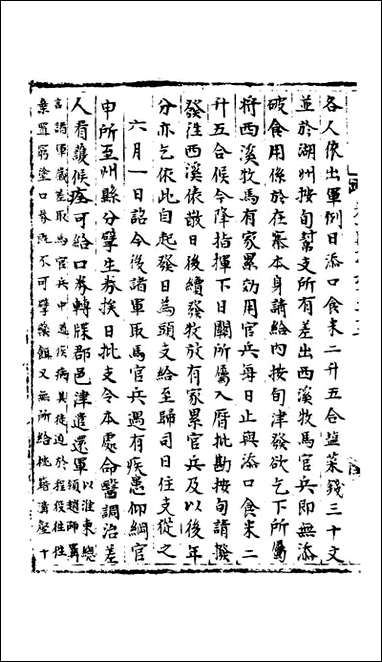 各人依出軍例日添口食米二升五合盐菜錢三十文
並於湖州按旬幫支所有差出西溪牧馬官兵即無添
破食用係於在寨本身請給內按旬津發欲乞下所屬
將西溪牧馬有家累効用官兵每日止與添口食米二
升五合候今降指揮下日關所屬入曆批勘按旬請撥
發往西溪俵散日後續發牧放有家累官兵及以後年
分亦乞依此自起發日為頭支給至歸司日住支從之
六月一日詔今後諸軍取馬官兵遇有疾患仰綱官
申所至州縣分擘生券挨日批支令本處命醫調治差
人看護候痊可給口券轉牒郡邑津遣還軍以淮東總
領趙師𢍰
言諸軍歲差取馬官兵中道疾病其徒迫於程役往往
棄置窮塗口券既不可擘療餌又無所給枕藉溝壑十